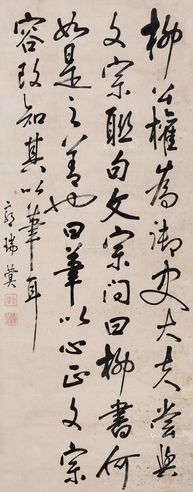 柳公權為御史大夫嘗與
文宗聯句文宗問曰柳書何
如是之善也曰筆以心正文宗
容改知其以筆耳
瑞蓂